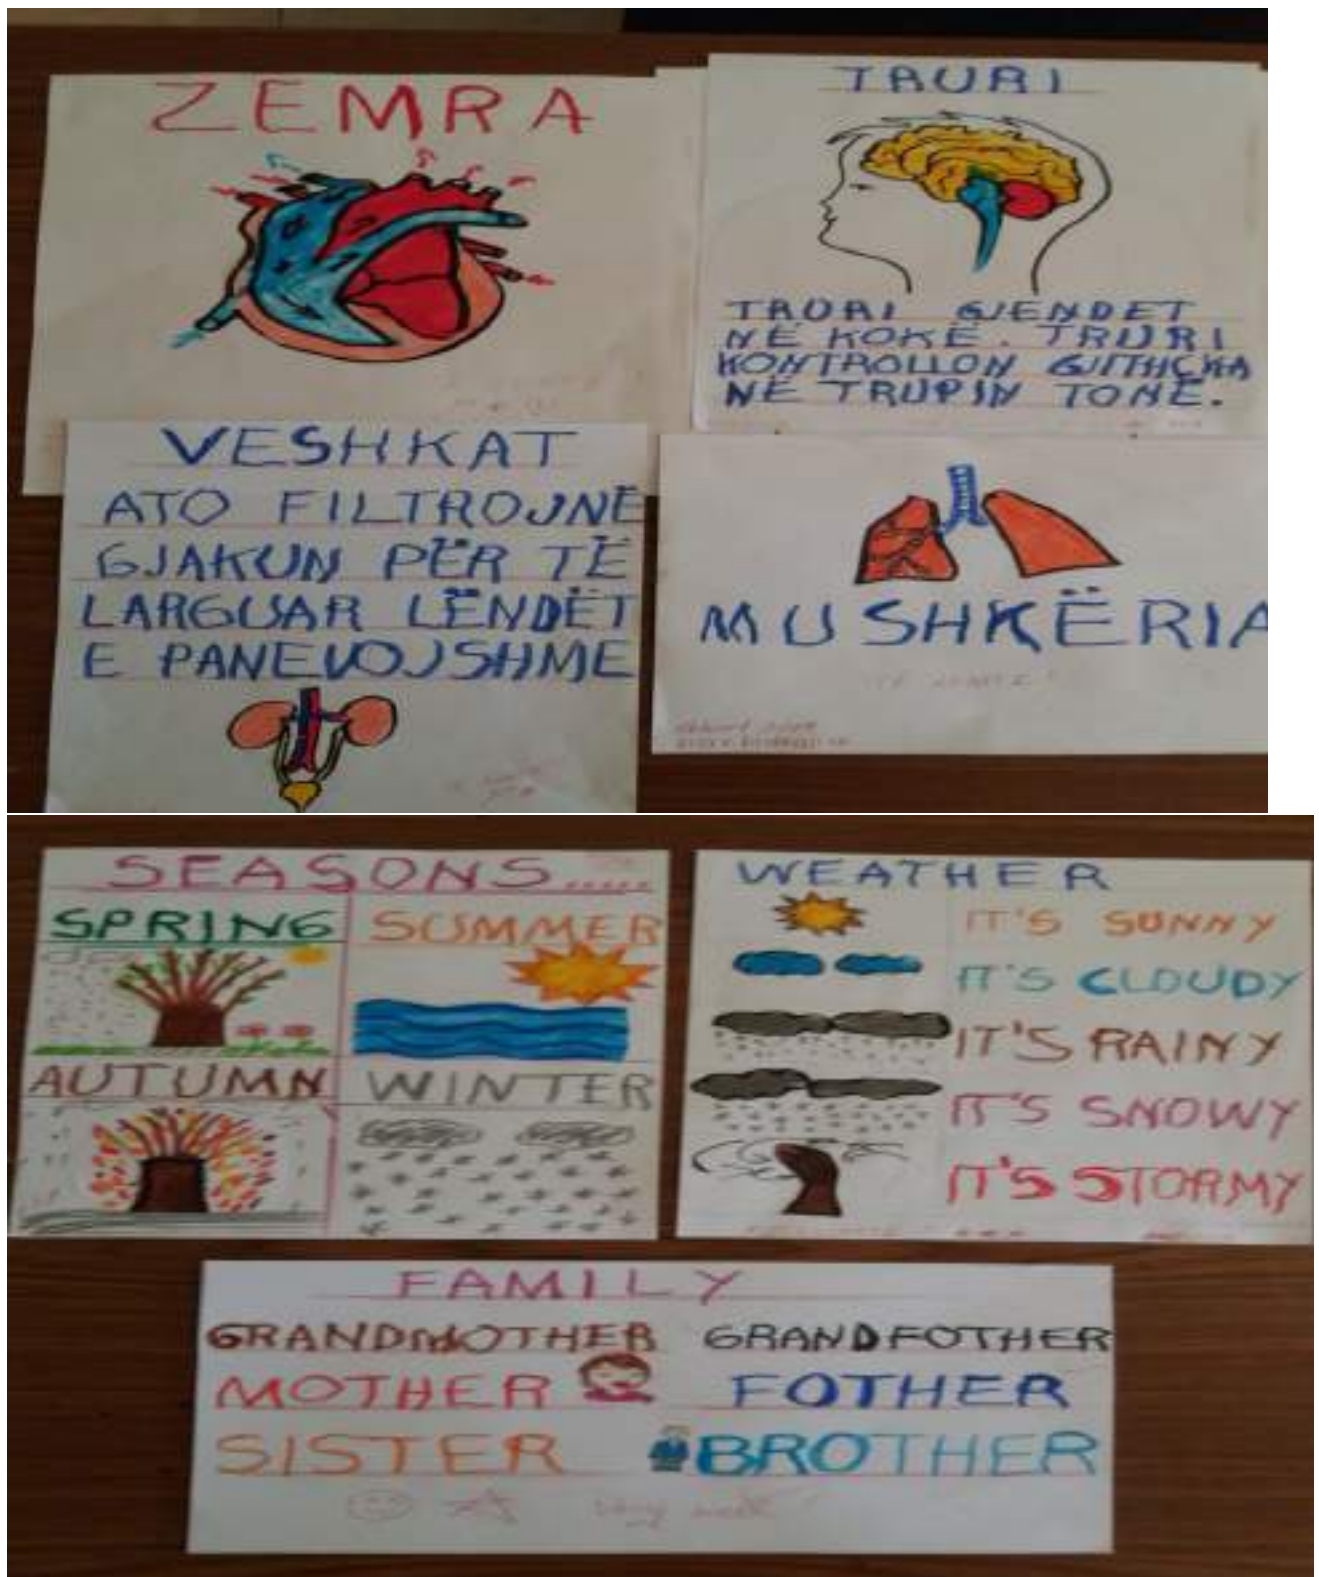 ZEMRA
TRURI
TRURI GJENDET
NË KOKË. TRURI
KONTROLLON GJITHÇKA
NË TRUPIN TONË.
VESHKAT
ATO FILTROJNË
GJAKUN PËR TË
LARGUAR LËNDËT
E PANEVOJSHME
MUSHKËRIA
SEASONS.....
SPRING
SUMMER
AUTUMN
WINTER
WEATHER
IT'S SUNNY
IT'S CLOUDY
IT'S RAINY
IT'S SNOWY
IT'S STORMY
FAMILY
GRANDMOTHER GRANDFOTHER
MOTHER FOTHER
SISTER BROTHER